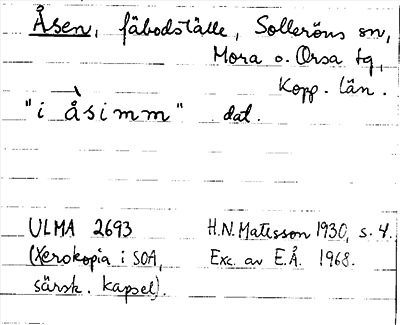 Åsen, fäbodställe, Solleröns sn,
Mora o. Orsa tg,
Kopp. län.
"i åsimm" dat.
ULMA 2693 H.N. Matsson 1930, s. 4.
(Xerokopia i SOA, Exc. av E.Å. 1968.
särsk. kapsel).